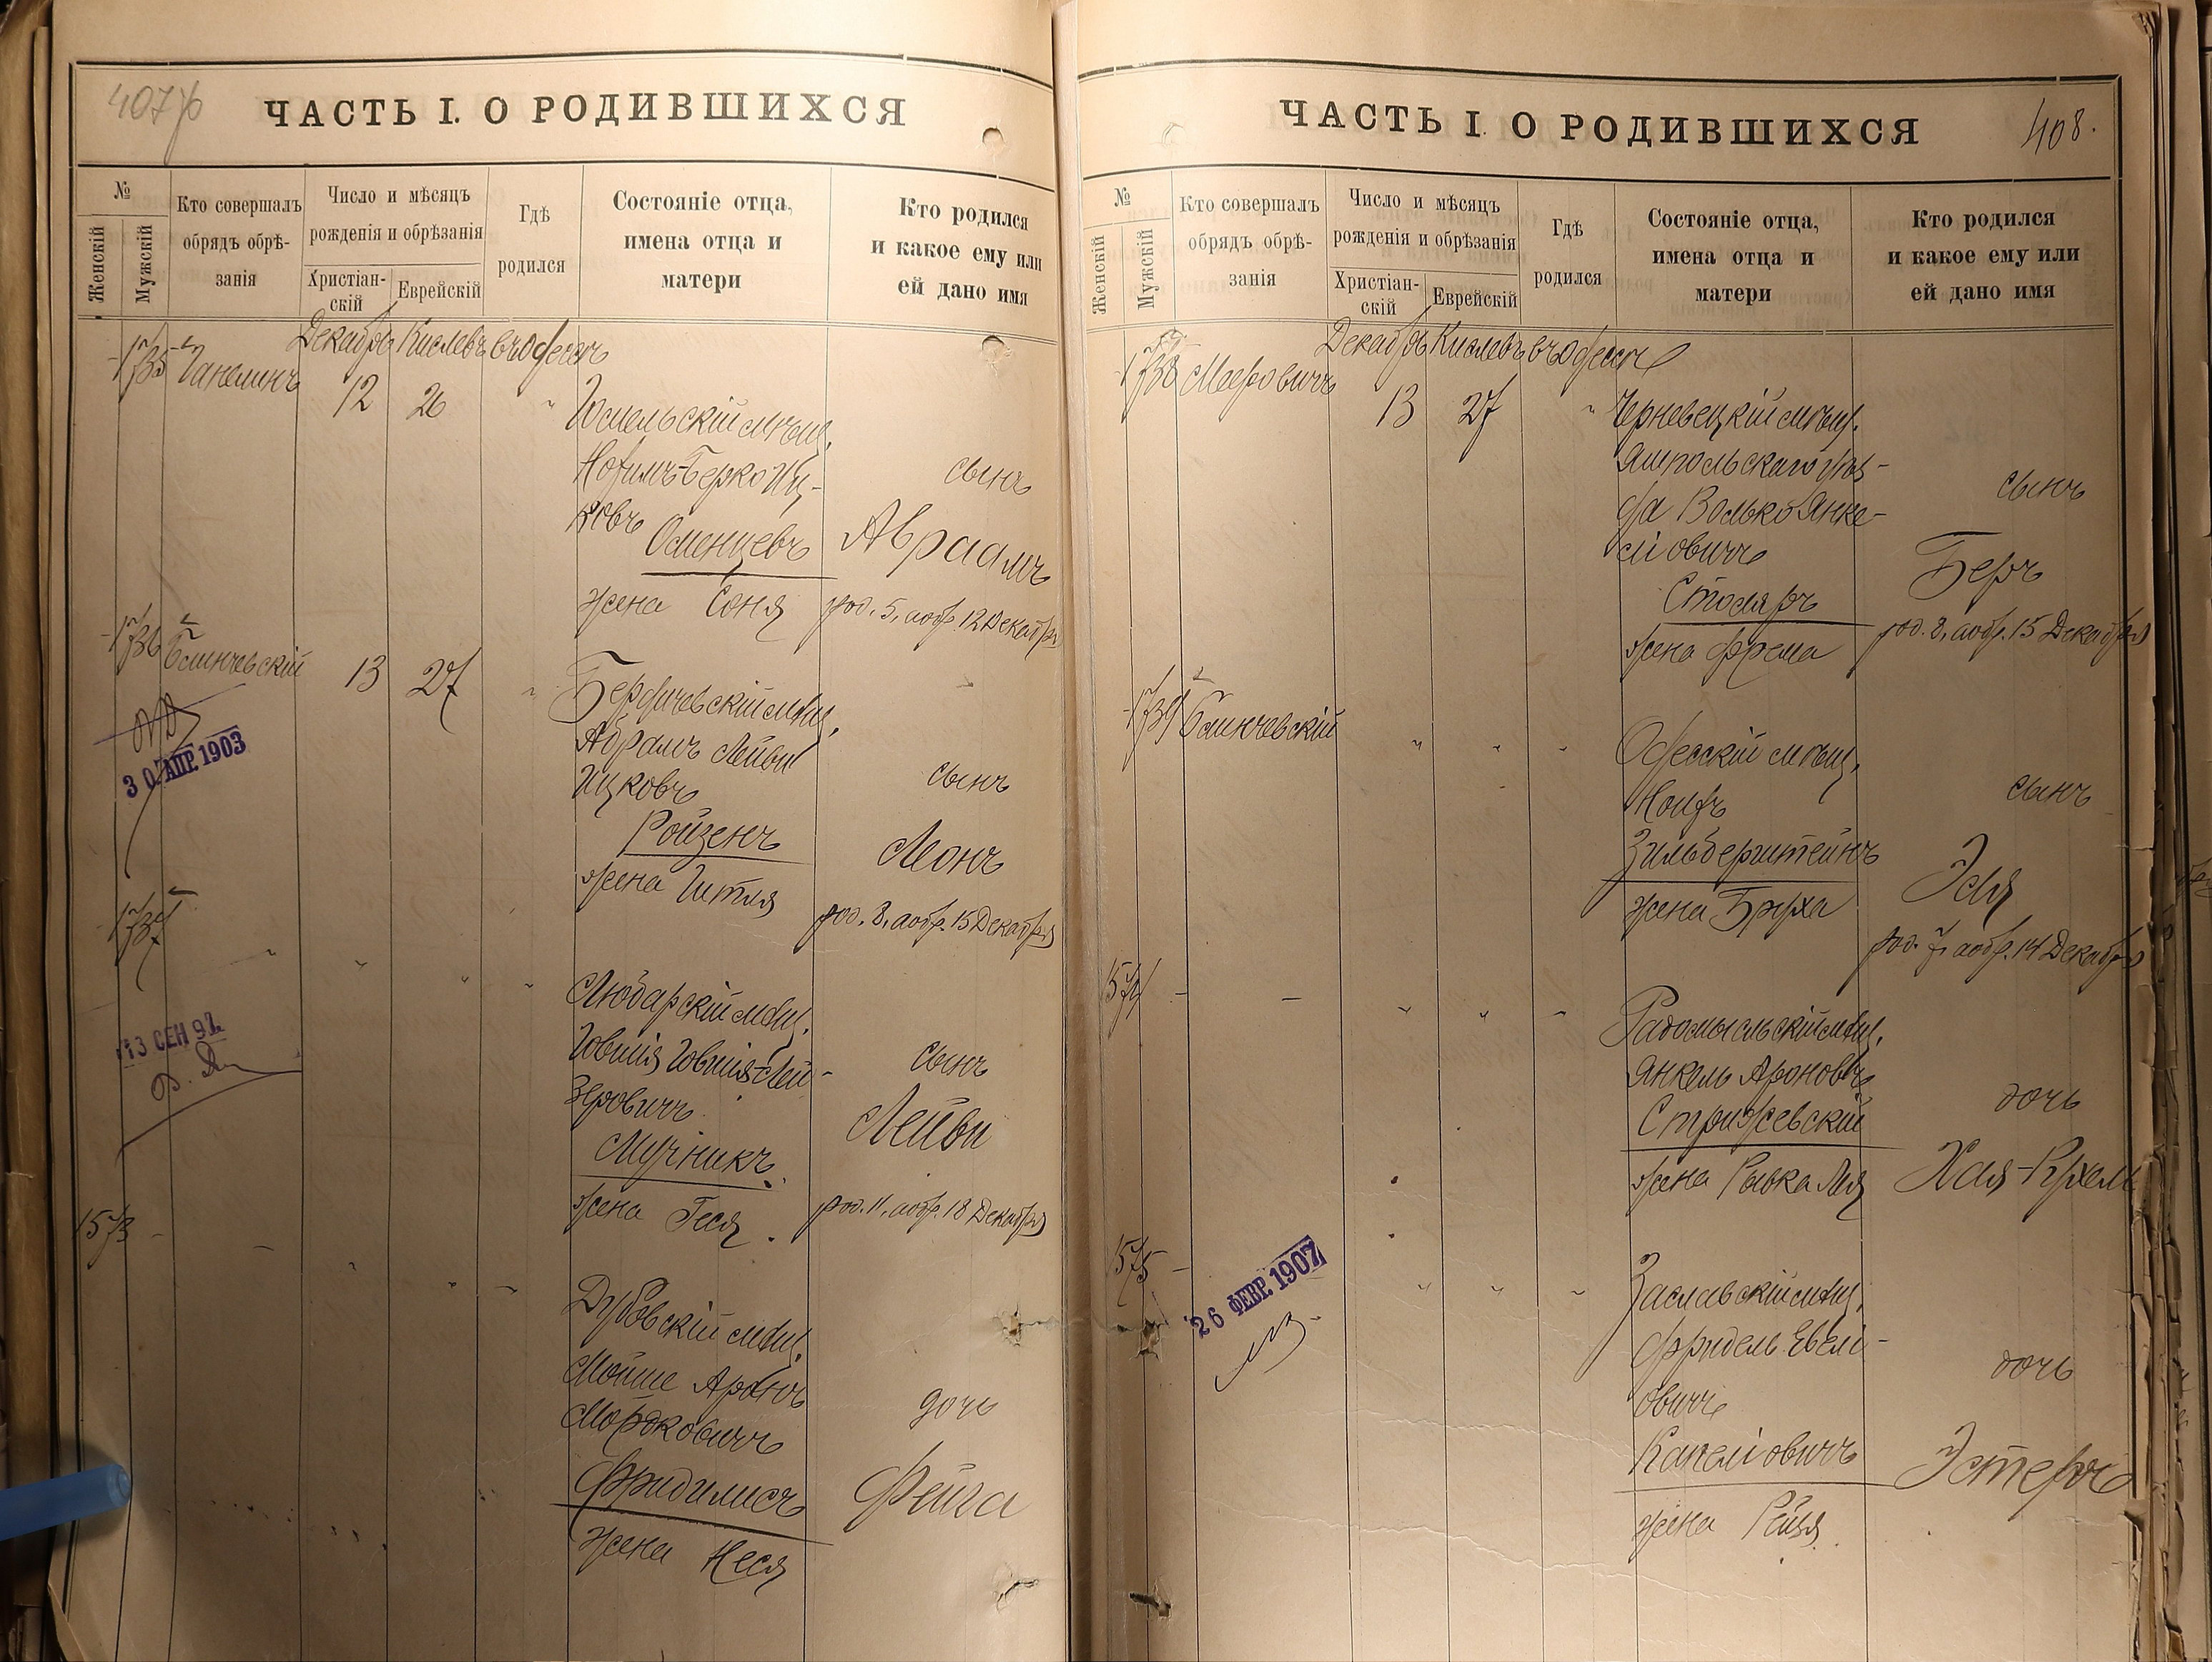 407 об
ЧАСТЬ I. О РОДИВШИХСЯ
№
Женскій
Мужскій
Кто совершалъ
обрядъ обрѣ-
занія
Число и мѣсяцъ
рожденія и обрѣзанія
Христіан-
скій
Еврейскій
Гдѣ
родился
Состояніе отца,
имена отца и
матери
Кто родился
и какое ему или
ей дано имя
Декабрь Кислевъ въ Одессѣ
1735 Ганелинъ
12 26 "
Гомельскій мѣщ.
Нохимъ-Берко Иц-
ковъ
Оменцевъ
жена Соня
сынъ
Авраамъ
род. 5, а обр. 12 Декабря
1736 Блинчевскій
13 27 "
30 АПР. 1903
Бердичевскій мѣщ.
Абрамъ Лейви
Ицковъ
Ройзенъ
жена Гитля
сынъ
Леонъ
род. 8, а обр. 15 Декабря
1737
" " " "
13 СЕН 92
Любарскій мѣщ.
Говшія Говшія-Лей-
зеровичъ
Мучникъ
жена Геся
сынъ
Лейви
род. 11, а обр. 18 Декабря
1573 - -
" " -
Дубовскій мѣщ.
Мойше Аронъ
Мордковичъ
Фридилисъ
жена Неся
дочь
Фейга
ЧАСТЬ I. О РОДИВШИХСЯ
408.
№
Женскій
Мужскій
Кто совершалъ
обрядъ обрѣ-
занія
Число и мѣсяцъ
рожденія и обрѣзанія
Христіан-
скій
Еврейскій
Гдѣ
родился
Состояніе отца,
имена отца и
матери
Кто родился
и какое ему или
ей дано имя
Декабрь Кислевъ въ Одессѣ
1738 Мееровичъ
13 27 "
Черневецкій мѣщ.
Ямпольскаго уѣз-
да Волько Янке-
лiовичъ
Столяръ
жена Фрема
сынъ
Беръ
род. 8, а обр. 15 Декабря
1739 Блинчевскій
" " "
Одесскій мѣщ.
Зильберштейнъ
жена Бруха
сынъ
Эля
род. 7, а обр. 14 Декабря
1574 - -
" " -
Радомысльскій мѣщ.
Янкель Ароновъ
Стрижевскій
жена Рывка Лея
дочь
Хая-Рухель
1575 -
" " "
26 ФЕВР. 1907
Заславскій мѣщ.
Фридель Евелі-
овичъ
Капеліовичъ
жена Рейзя
дочь
Эстеръ